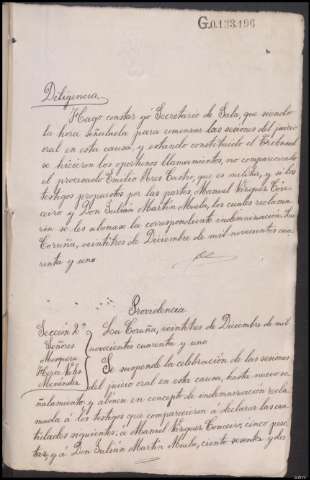 G.0.133.196
Diligencia.
Hago constar yó Secretario de Sala, que siendo
la hora señalada para comenzar las sesiones del juicio
oral en esta causa, y estando constituido el Tribunal
se hicieron los oportunos llamamientos, no compareciendo
el procesado Emilio Rres que es militar, y si los
testigos propuestos por las partes, Manuel Vazquez Con-
ceiro y Don Julián Martín los cuales reclama-
rón se les abonase la correspondiente indemnización. La
Coruña, veintitres de Diciembre de mil novecientos cua-
renta y uno
Providencia
Sección 2ª
Señores
Menéndez
La Coruña, veintitres de Diciembre de mil
novecientos cuarenta y uno
Se suspende la celebración de las sesiones
del juicio oral en esta causa, hasta nuevo se-
ñalamiento y abonen en concepto de indemnización recla-
mada á los testigos que comparecieron a declarar las can-
tidades siguientes: a Manuel Vazquez Conceiro, cinco pese-
tas, y á Don Julián Martín ciento sesenta y dos